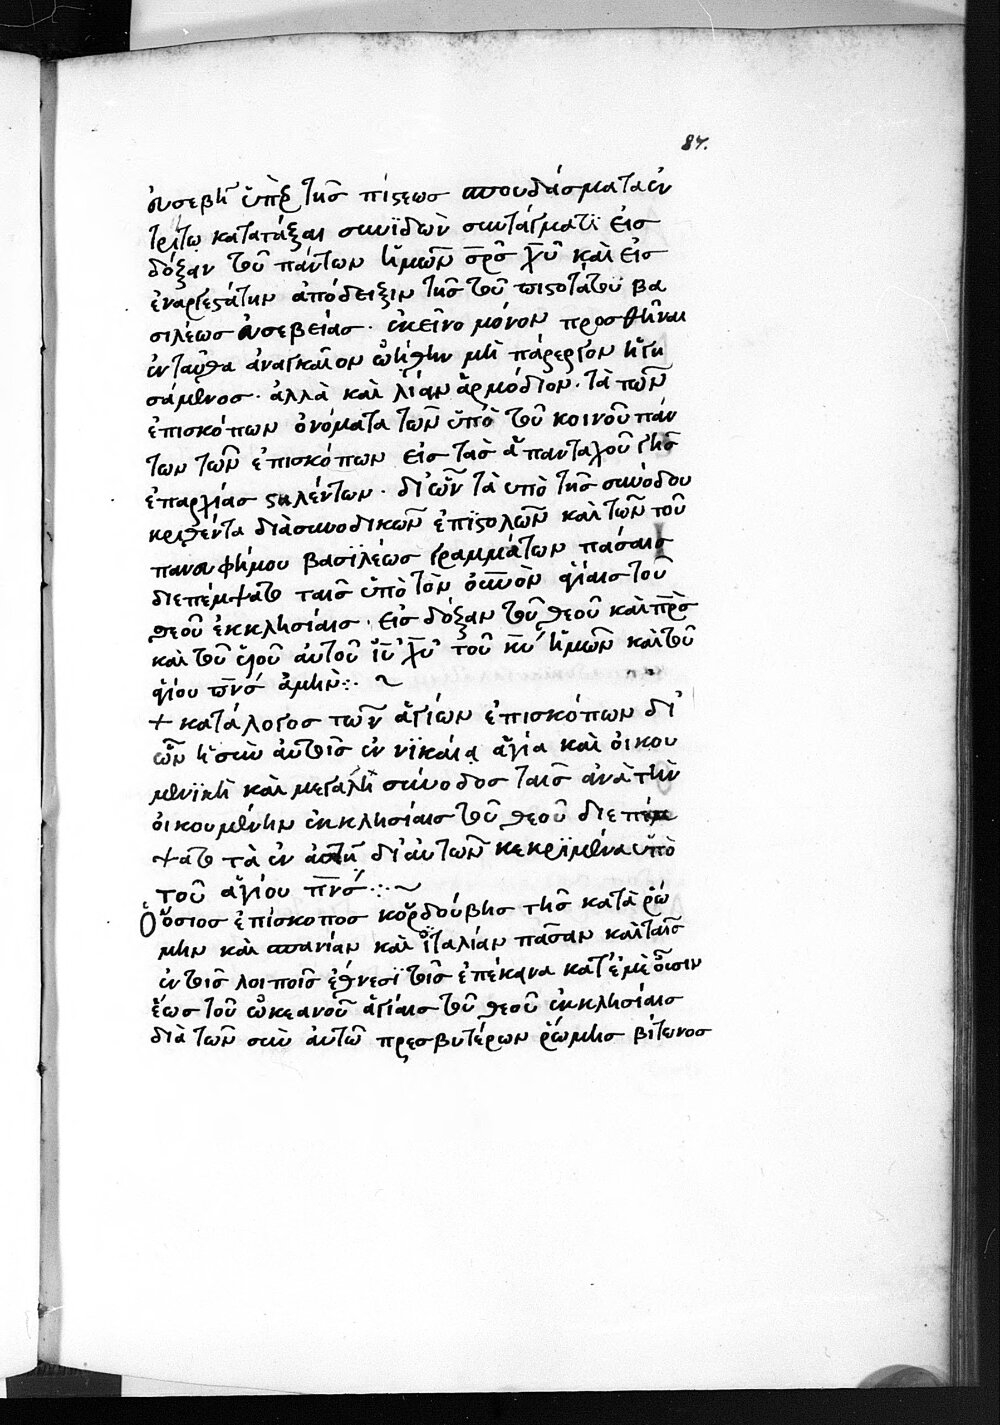 87.
εὐσεβῆ ὑπὲρ τῆς πίστεως σπουδάσματα ἐν
τρίτω κατατάξαι συνϊδὼν συντάγματϊ εἰς
δόξαν τοῦ πάντων ἡμῶν σρ̅ς χ̅υ καὶ εἰς
ἐναργεστάτην ἀπόδειξιν τῆς τοῦ πιστοτάτου βα
σιλέως εὐσεβείας· ἐκεῖνο μόνον προσθῆναι
ἐνταῦθα ἀναγκαῖον ὠήθην μὴ πάρεργον ἡγη
σάμενος· ἀλλὰ καὶ λίαν ἁρμόδιον· τὰ τῶν
ἐπισκόπων ὀνόματα τῶν ὑπὸ τοῦ κοινοῦ πάν
των τῶν ἐπισκόπων εἰς τὰς ἁπανταχοῦ γῆς
ἐπαρχίας στηλέντων· δι' ὧν τὰ ὑπὸ τῆς συνόδου
κριθέντα διὰ συνοδικῶν ἐπιστολῶν καὶ τῶν τοῦ
πανευφήμου βασϊλέως γραμμάτων πάσαις
διεπέμψατο ταῖς ὑπὸ τὸν ο̅υ̅νὸν ἁγίαις τοῦ
θεοῦ ἐκκλησίαις· εἰς δόξαν τοῦ θεοῦ καὶ π̅ρ̅ς
καὶ τοῦ υἱοῦ αὐτοῦ ι̅υ χ̅υ τοῦ κ̅υ ἡμῶν καὶ τοῦ
ἁγίου π̅ν̅ς ἀμὴν:· ~
+ κατάλογος τῶν ἁγίων ἐπισκόπων δι'
ὧν ἡ σὺν αὐτοῖς ἐν νϊκαία ἁγία καὶ οἰκου
μενϊκὴ καὶ μεγάλη σύνοδος ταῖς ἀνὰ τὴν
οἰκουμένην ἐκκλησίαις τοῦ θεοῦ διεπέμ
ψατο τὰ ἐν αὐτῆ δι' αὐτῶν κεκρϊμένα ὑπὸ
τοῦ ἁγίου π̅ν̅ς:·~
Ὁ ὅσιος ἐπίσκοπος κορδούβης τῆς κατὰ ῥώ
μην καὶ σπανίαν καὶ ἰταλίαν πᾶσαν καὶ ταῖς
ἐν τοῖς λοιποῖς ἔθνεσϊ τοῖς ἐπέκεινα κατ' ἐμὲ οὖσιν
ἕως τοῦ ὠκεανοῦ ἁγίαις τοῦ θεοῦ ἐκκλησίαις
διὰ τῶν σὺν αὐτῶ πρεσβυτέρων ῥώμης βίτωνος